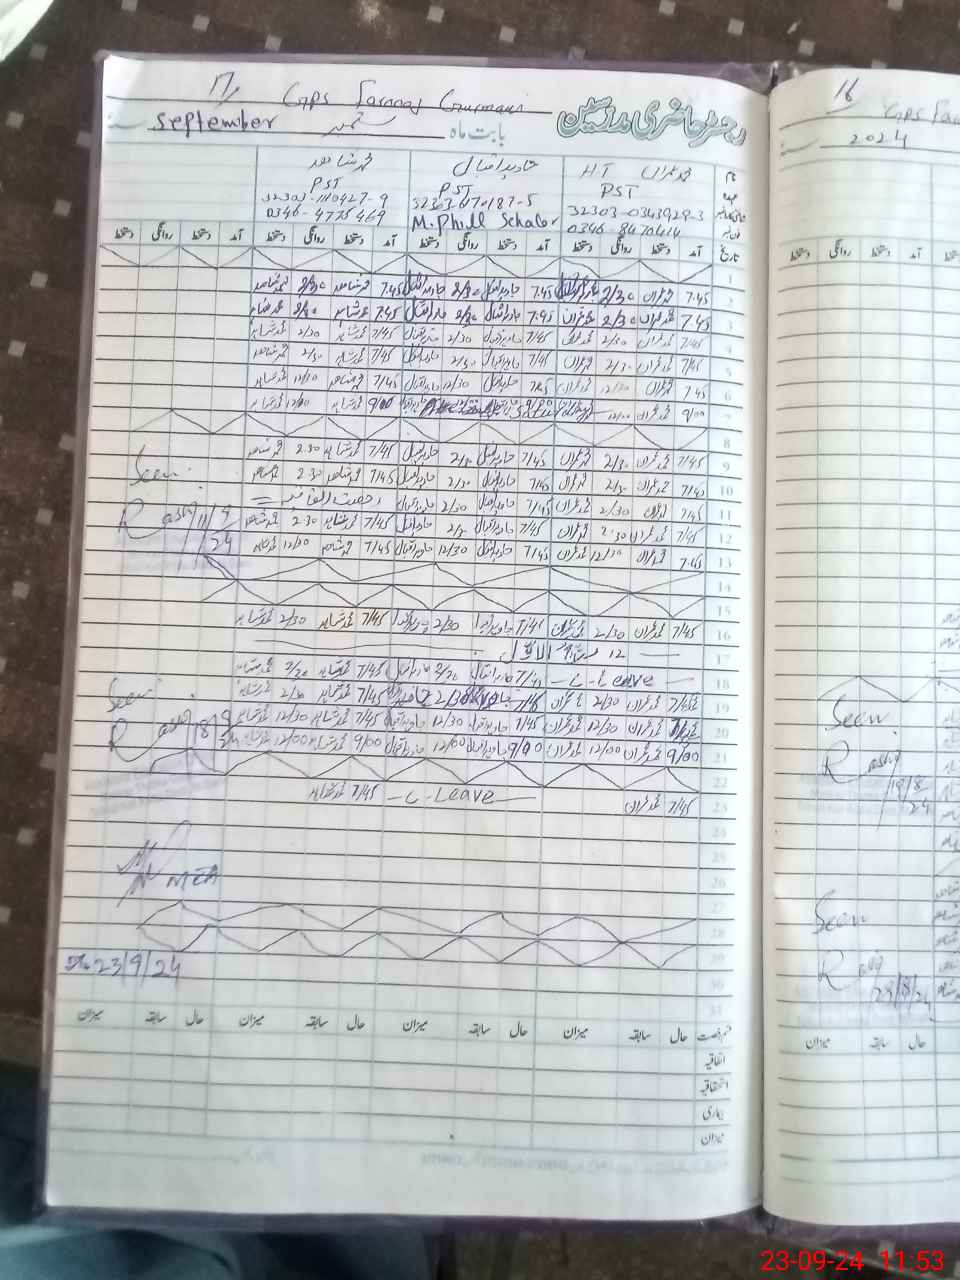 17
GPS
رجسٹر حاضری مدرسین
September ستمبر بابت ماہ
نام محمد عمران HT جاوید اقبال محمد شاہد
عہدہ PST PST PST
32303-0343928-3
0346-8470414 M.Phill Scholar 0346-4775469
تاریخ آمد دستخط روانگی دستخط آمد دستخط روانگی دستخط آمد دستخط روانگی دستخط آمد دستخط روانگی دستخط
1
2 7.45 محمد عمران 2/30 7.45 جاوید اقبال 2/30 جاوید اقبال 7.45 محمد شاہد 2/30 محمد شاہد
3 7.45 محمد عمران 2/30 محمد عمران 7.45 جاوید اقبال 2/30 جاوید اقبال 7.45 محمد شاہد 2/30 محمد شاہد
4 7/45 محمد عمران 2/30 محمد عمران 7/45 جاوید اقبال 2/30 جاوید اقبال 7/45 محمد شاہد 2/30 محمد شاہد
5 7/45 محمد عمران 2/30 محمد عمران 7/45 جاوید اقبال 2/30 جاوید اقبال 7/45 محمد شاہد 2/30 محمد شاہد
6 7.45 محمد عمران 12/30 محمد عمران 7.45 جاوید اقبال 12/30 جاوید اقبال 7/45 محمد شاہد 12/30 محمد شاہد
7 9/00 محمد عمران 12/00 9/00 محمد شاہد 12/00 محمد شاہد
8
9 7/45 محمد عمران 2/30 محمد عمران 7/45 جاوید اقبال 2/30 جاوید اقبال 7/45 محمد شاہد 2.30 محمد شاہد
10 7/45 محمد عمران 2/30 محمد عمران 7/45 جاوید اقبال 2/30 جاوید اقبال 7/45 محمد شاہد 2.30 محمد شاہد Seen
11 7/45 محمد عمران 2/30 محمد عمران 7/45 جاوید اقبال 2/30 جاوید اقبال رخصت اتفاقیہ
12 7/45 محمد عمران 2.30 محمد عمران 7/45 جاوید اقبال 2/30 جاوید اقبال 7/45 محمد شاہد 2.30 محمد شاہد 11/9/24
13 7.45 محمد عمران 12/30 محمد عمران 7/45 جاوید اقبال 12/30 جاوید اقبال 7/45 محمد شاہد 12/30 محمد شاہد
14
15
16 7/45 محمد عمران 2/30 محمد عمران 7/45 جاوید اقبال 2/30 جاوید اقبال 7/45 محمد شاہد 2/30 محمد شاہد
17 12 ربیع الاول
18 C-Leave 7/45 جاوید اقبال 2/30 جاوید اقبال 7/45 محمد شاہد 2/30 محمد شاہد
19 7/45 محمد عمران 2/30 محمد عمران 7/45 جاوید اقبال 2/30 7/45 محمد شاہد 2/30 محمد شاہد Seen
20 محمد عمران 12/30 محمد عمران 7/45 جاوید اقبال 12/30 جاوید اقبال 7/45 محمد شاہد 12/30 محمد شاہد 18/9/24
21 9/00 محمد عمران 12/00 محمد عمران 9/00 جاوید اقبال 12/00 جاوید اقبال 9/00 محمد شاہد 12/00 محمد شاہد
22
23 7/45 محمد عمران C-Leave 7/45 محمد شاہد
24
25
26
MEA
27
28
29
30 23/9/24
31
قسم رخصت حال سابقہ میزان حال سابقہ میزان حال سابقہ میزان حال سابقہ میزان
اتفاقیہ
استحقاقیہ
بیماری
میزان
16
GPS
2024
دستخط روانگی دستخط
Seen
19/8/24
Seen
29/8/24
حال سابقہ میزان
23-09-24 11:53